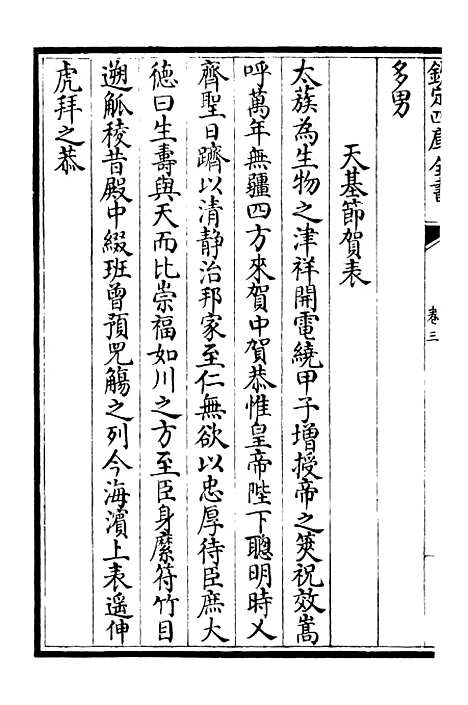 欽定四庫全書
卷三
多男
天基節賀表
太族為生物之津祥開電繞甲子增授帝之筴祝效嵩
呼萬年無疆四方來賀中賀恭惟皇帝陛下聰明時乂
齊聖日躋以清靜治邦家至仁無欲以忠厚待臣庶大
德曰生壽與天而比崇福如川之方至臣身縻符竹目
遡觚稜昔殿中綴班曾預兕觴之列今海濱上表遥伸
虎拜之恭